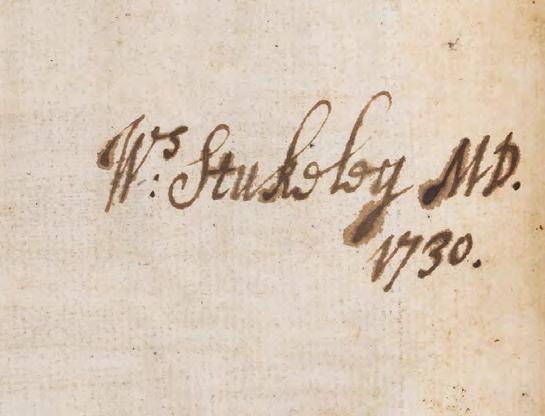 Wm: Stukeley MD.
1730.